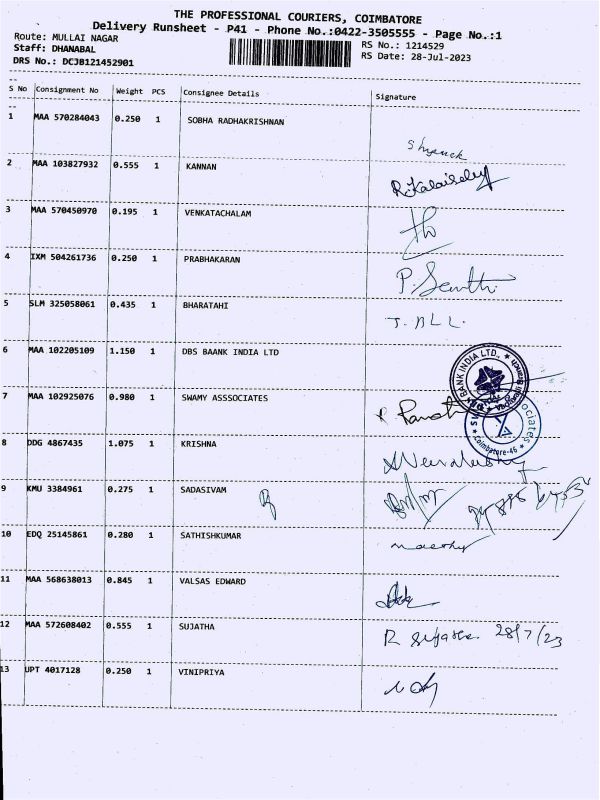 THE PROFESSIONAL COURIERS, COIMBATORE
Delivery Runsheet - P41 - Phone No.:0422-3505555 - Page No.:1
Route: MULLAI NAGAR
RS No.: 1214529
Staff: DHANABAL
RS Date: 28-Jul-2023
DRS No.: DCJB121452901
S No Consignment No Weight PCS Consignee Details Signature
1 MAA 570284043 0.250 1 SOBHA RADHAKRISHNAN
2 MAA 103827932 0.555 1 KANNAN
3 MAA 570450970 0.195 1 VENKATACHALAM
4 IXM 504261736 0.250 1 PRABHAKARAN
5 SLM 325058061 0.435 1 BHARATAHI
6 MAA 102205109 1.150 1 DBS BAANK INDIA LTD
BANK INDIA LTD.
7 MAA 102925076 0.980 1 SWAMY ASSSOCIATES
Coimbatore-46
8 DDG 4867435 1.075 1 KRISHNA
9 KMU 3384961 0.275 1 SADASIVAM
10 EDQ 25145861 0.280 1 SATHISHKUMAR
11 MAA 568638013 0.845 1 VALSAS EDWARD
12 MAA 572608402 0.555 1 SUJATHA R 28/7/23
13 UPT 4017128 0.250 1 VINIPRIYA